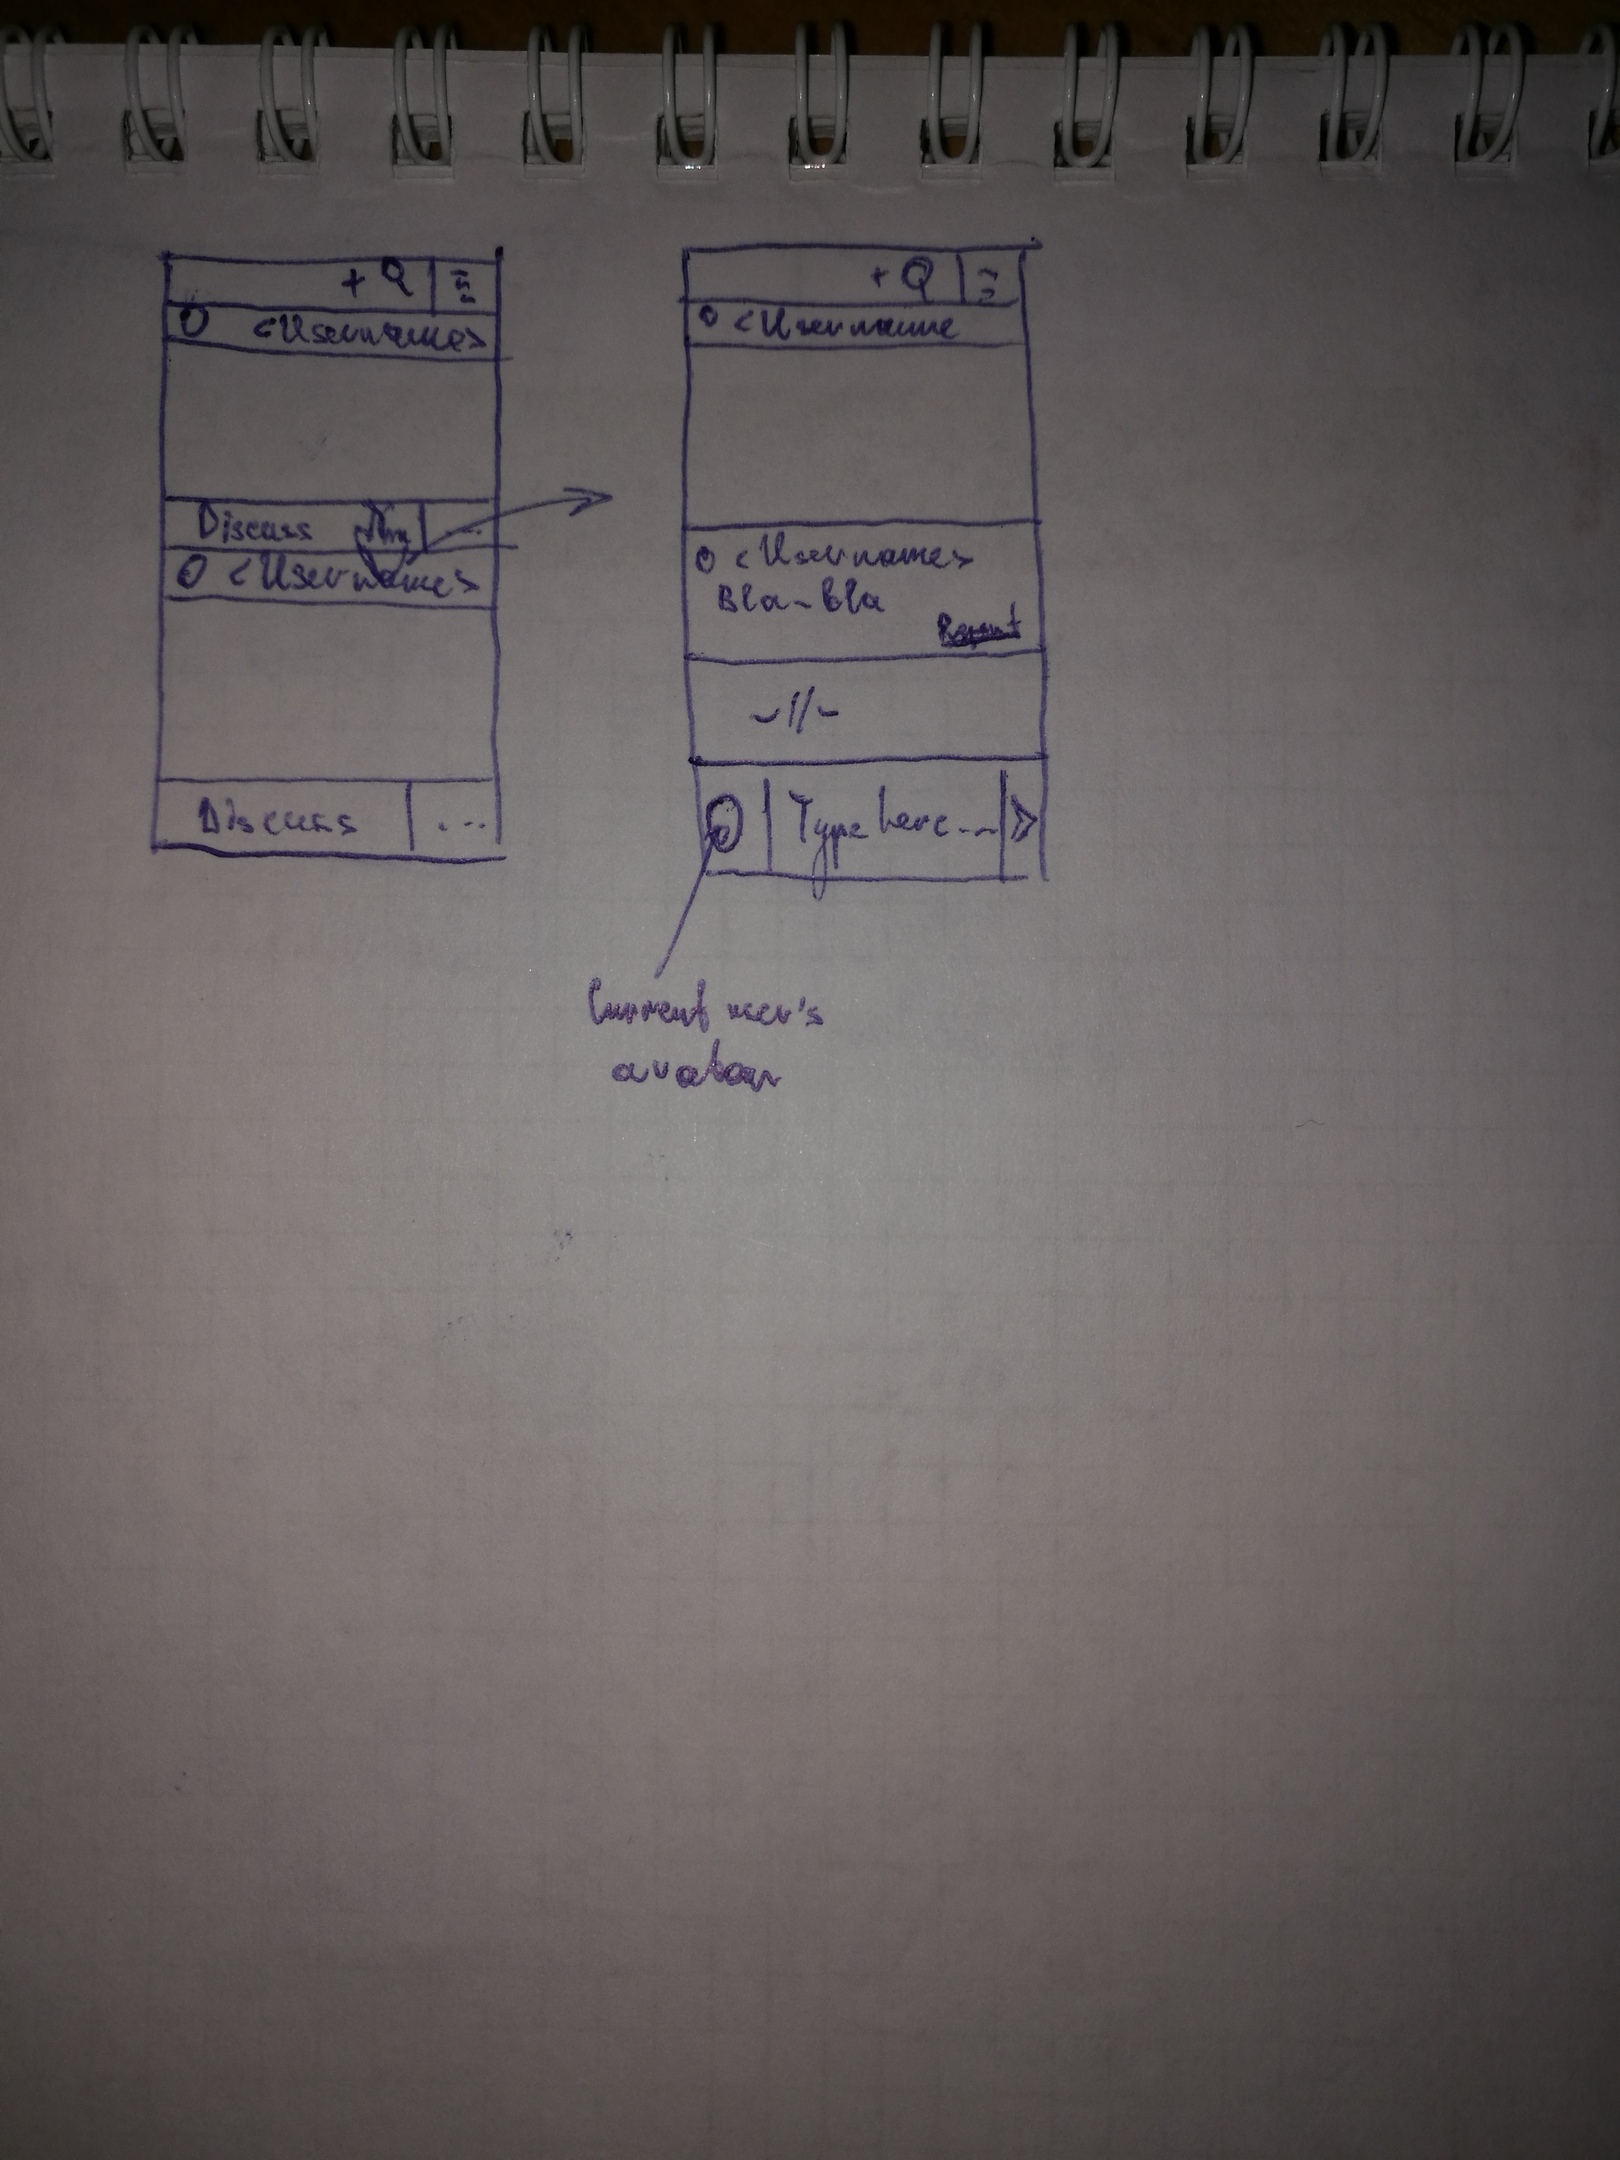 +
<Username>
Discuss
<Username>
Discuss ...
+
<Username
<Username>
Bla-bla
-//-
Type here...
Current user's
avatar